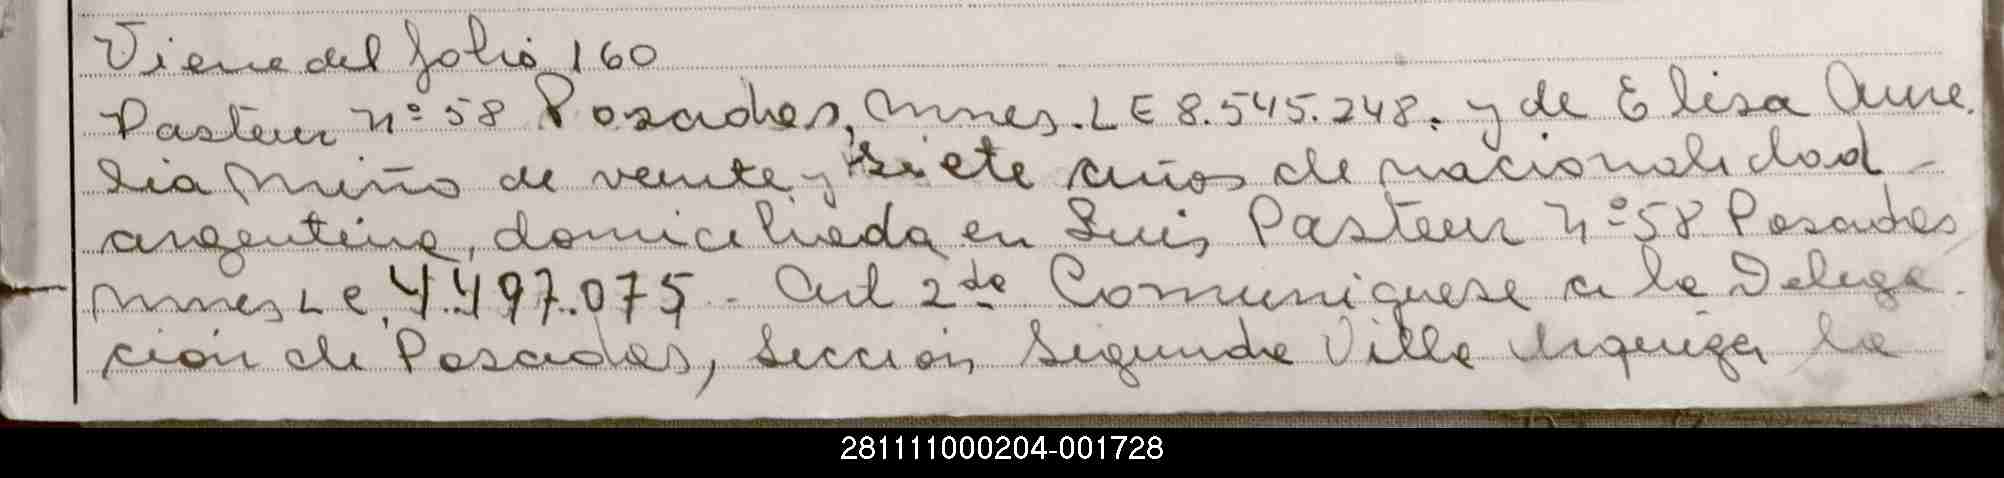 Viene del folio 160
Pasteur nº 58 Posadas, Mnes. LE 8.545.248. y de Elisa Aure.
lia Miño de veinte y siete años de nacionalidad -
argentina, domiciliada en Luis Pasteur nº 58 Posadas
Mnes Le 4.497.075 - Art 2do Comuniquese a la Delega
ción de Posadas, Sección Segunda Villa Urquiza la
281111000204-001728